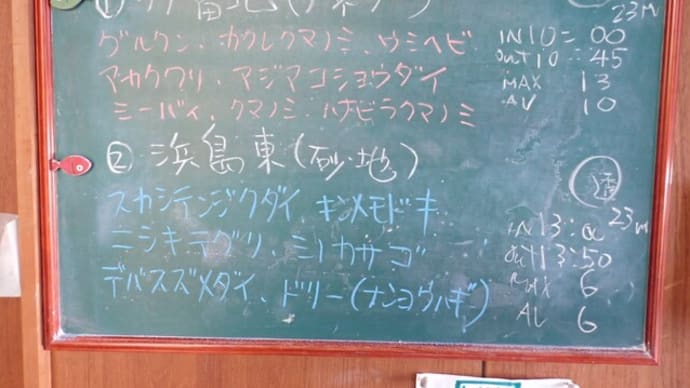 23m
グルクン、カクレクマノミ、ウミヘビ
IN 10 = 00
out 10 = 45
アカククリ、アジアコショウダイ
MAX 13
AV 10
ミーバイ、クマノミ、ハナビラクマノミ
② 浜島東(砂地)
透 23m
スカシテンジクダイ キンメモドキ
IN 13:
ニシキテグリ、ミノカサゴ
out 13:50
MAX 6
デバスズメダイ、ドリー(ナンヨウハギ)
AV 6